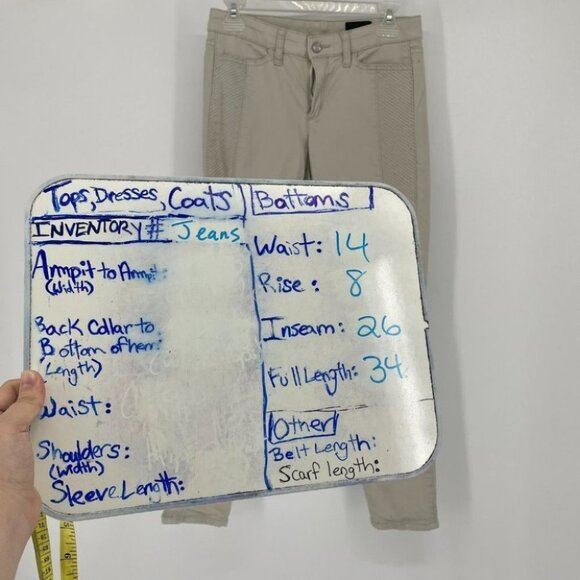 Tops, Dresses, Coats
INVENTORY # Jeans
Armpit to Armpit:
(Width)
Back Collar to
Bottom of hem:
(Length)
Waist:
Shoulders:
(width)
Sleeve Length:
Bottoms
Waist: 14
Rise: 8
Inseam: 26
Full Length: 34
Other
Belt Length:
Scarf length: